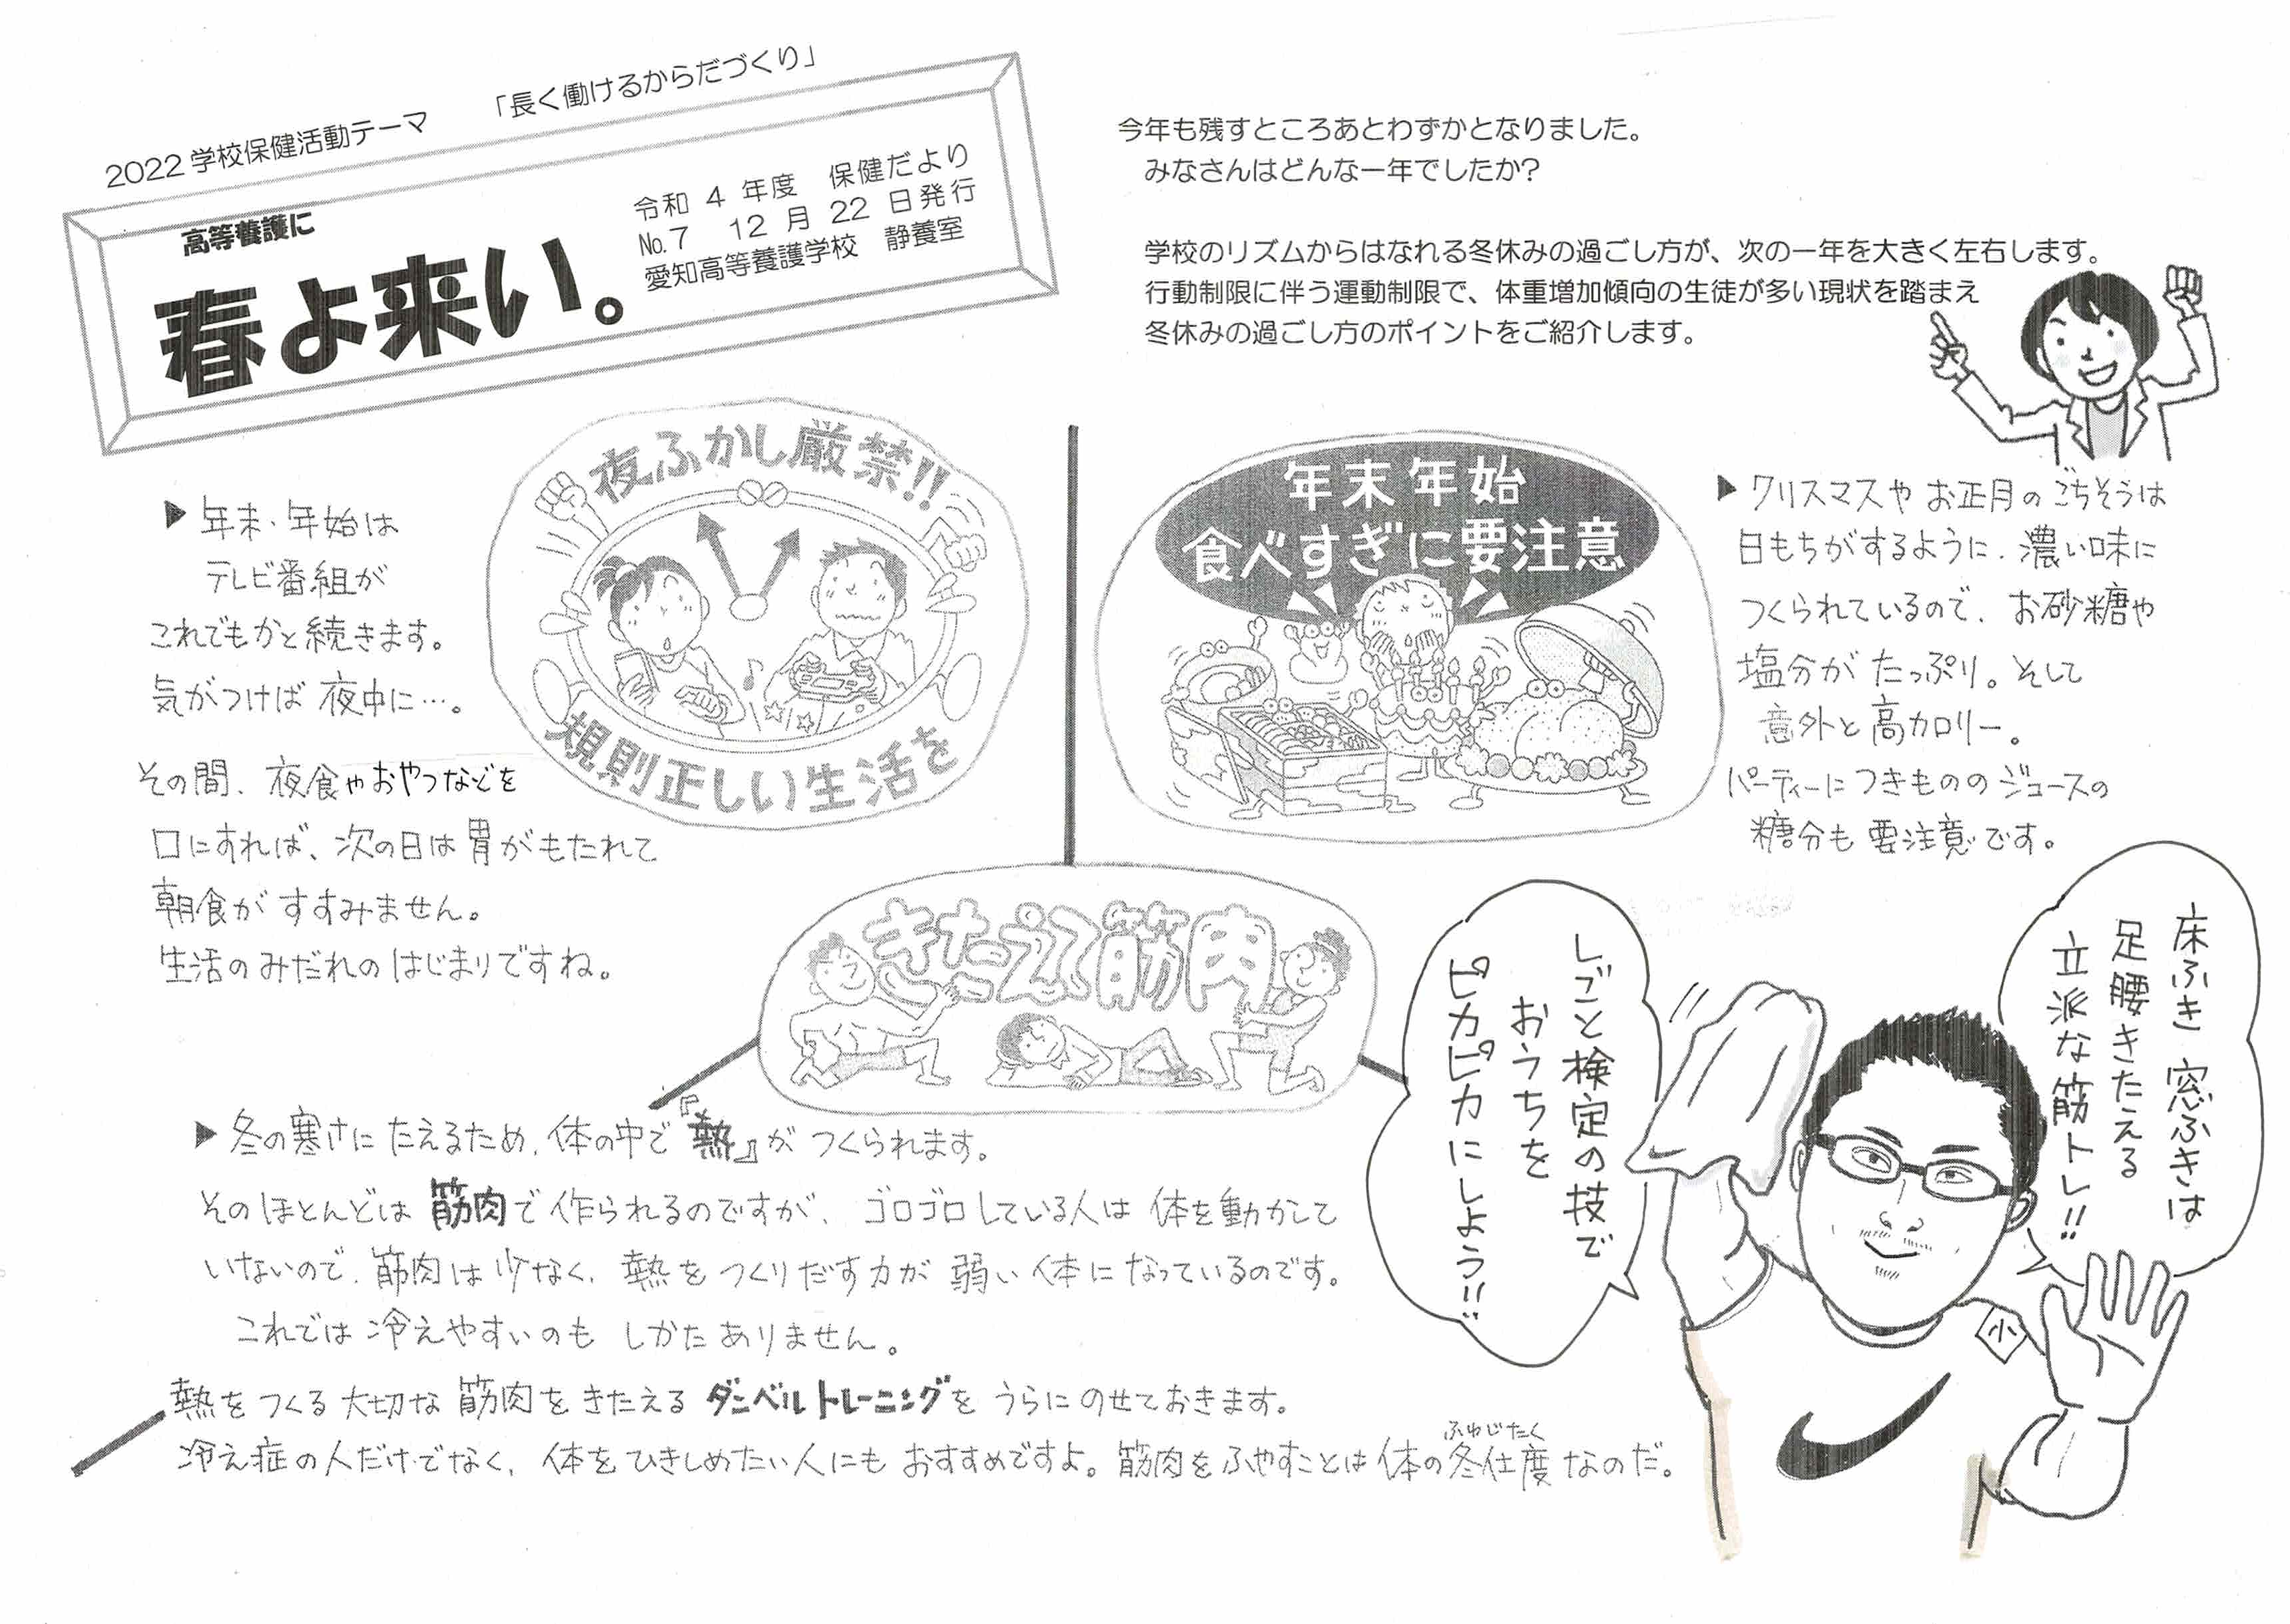 2022 学校保健活動テーマ　「長く働けるからだづくり」
高等養護に
春よ来い。
令和 4 年度　保健だより
No.7　12 月 22 日発行
愛知高等養護学校　静養室
今年も残すところあとわずかとなりました。
みなさんはどんな一年でしたか?
学校のリズムからはなれる冬休みの過ごし方が、次の一年を大きく左右します。
行動制限に伴う運動制限で、体重増加傾向の生徒が多い現状を踏まえ
冬休みの過ごし方のポイントをご紹介します。
夜ふかし厳禁!!
規則正しい生活を
▶年末・年始は
テレビ番組が
これでもかと続きます。
気がつけば 夜中に…。
その間、夜食やおやつなどを
口にすれば、次の日は胃がもたれて
朝食が すすみません。
生活のみだれの はじまりですね。
年末年始
食べすぎに要注意
▶クリスマスや お正月の ごちそうは
日もちがするように、濃い味に
つくられているので、お砂糖や
塩分が たっぷり。そして
意外と 高カロリー。
パーティーにつきものの ジュースの
糖分も 要注意です。
きたえろ筋肉
▶冬の寒さに たえるため、体の中で『熱』が つくられます。
そのほとんどは 筋肉で 作られるのですが、ゴロゴロしている人は 体を動かして
いないので、筋肉は少なく、熱を つくりだす力が 弱い体に なっているのです。
これでは 冷えやすいのも しかたありません。
熱をつくる大切な 筋肉を きたえる ダンベルトレーニングを うらに のせておきます。
冷え症の人だけでなく、体を ひきしめたい人にも おすすめですよ。筋肉を ふやすことは 体の冬仕度なのだ。
ふゆじたく
しごと検定の技で
おうちを
ピカピカにしよう!!
床ふき 窓ふきは
足腰きたえる
立派な筋トレ!!
小